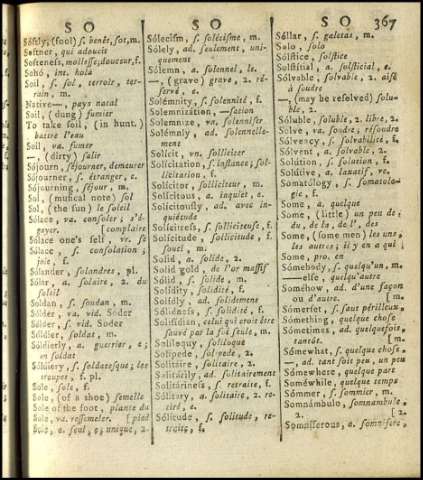 SO
SO
SO 367
Softly, (fool) s. benêt, sot, m.
Softner, qui adoucit
Softeness, mollesse, douceur, f.
Sohó, int. hola
Soil, s. sol, terroir, ter-
rain, m.
Native—, pays natal
Soil, (dung) fumier
To take soil, (in hunt.)
battre l'eau
Soil, va. fumer
—, (dirty) salir
Séjourn, séjourner, demeurer
Séjourner, s. étranger, e.
Séjourning, séjour, m.
Sol, (musical note) sol
Sol, (the sun) le soleil
Sólace, va. consoler; s'é-
gayer, [complaire
Sólace one's self, vr. se
Sólace, s. consolation;
joie, f.
Sólander, solandres, pl.
Sólar, a. solaire, 2. du
soleil
Soldan, s. soudan, m.
Sólder, va. vid. Soder
Sólder, s. vid. Soder
Sóldier, soldat, m.
Sóldierly, a. guerrier, e;
en soldat
Sóldiery, s. soldatesque; les
troupes, f. pl.
Sole, sole, f.
Sole, (of a shoe) semelle
Sole of the foot, plante du
Sole, va. ressemeler. [pied
Sole, a. seul, e; unique, 2.
Sólecism, s. solécisme, m.
Sólely, ad. seulement, uni-
quement
Sólemn, a. solennel, le.
—, (grave) grave, 2. ré-
servé, e.
Solémnity, s. solennité, f.
Solemnization, —sation
Solemnize, va. solenniser
Solémnly, ad. solennelle-
ment
Solícit, vn. solliciter
Solicitation, s. instance; sol-
licitation, f.
Solícitor, solliciteur, m.
Solícitous, a. inquiet, e.
Solícitously, ad. avec in-
quiétude
Solícitress, s. solliciteuse, f.
Solícitude, sollicitude, f.
souci, m.
Solid, a. solide, 2.
Solid gold, de l'or massif
Sólid, s. solide, m.
Solídity, solidité, f.
Solídly, ad. solidement
Sólidness, s. solidité, f.
Solifídian, celui qui croit être
sauvé par la foi seule, m.
Solíloquy, soliloque
Solipede, solipede, 2.
Solitaire, solitaire, 2.
Sólitarily, ad. solitairement
Sólitariness, s. retraite, f.
Sólitary, a. solitaire, 2. re-
tiré, e.
Sólitude, s. solitude, re-
traite, f.
Sóllar, s. galetas, m.
Solo, solo
Sólstice, solstice
Solstítial, a. solsticial, e.
Sólvable, solvable, 2. aisé
à soudre
—(may be resolved) solu-
ble, 2.
Sóluble, soluble, 2. libre, 2.
Solve, va. soudre; résoudre
Sólvency, s. solvabilité, f.
Sólvent, a. solvable, 2.
Solútion, s. solution, f.
Solútive, a. laxatif, ve.
Somatólogy, s. somatolo-
gie, f.
Some, a. quelque
Some, (little) un peu de;
du, de la, de l', des
Some, (some men) les uns,
les autres; il y en a qui;
Some, pro. en
Sómebody, s. quelqu'un, m.
—else, quelqu'autre
Sómehow, ad. d'une façon
ou d'autre. [m.
Sómerset, s. saut périlleux,
Sómething, quelque chose
Sómetimes, ad. quelquefois,
tantôt. [m.
Sómewhat, s. quelque chose,
—, ad. tant soit peu, un peu
Sómewhere, quelque part
Somewhile, quelque temps
Sómmer, s. sommier, m.
Somnámbulo, somnambule,
2. [2.
Somníferous, a. somnifere,